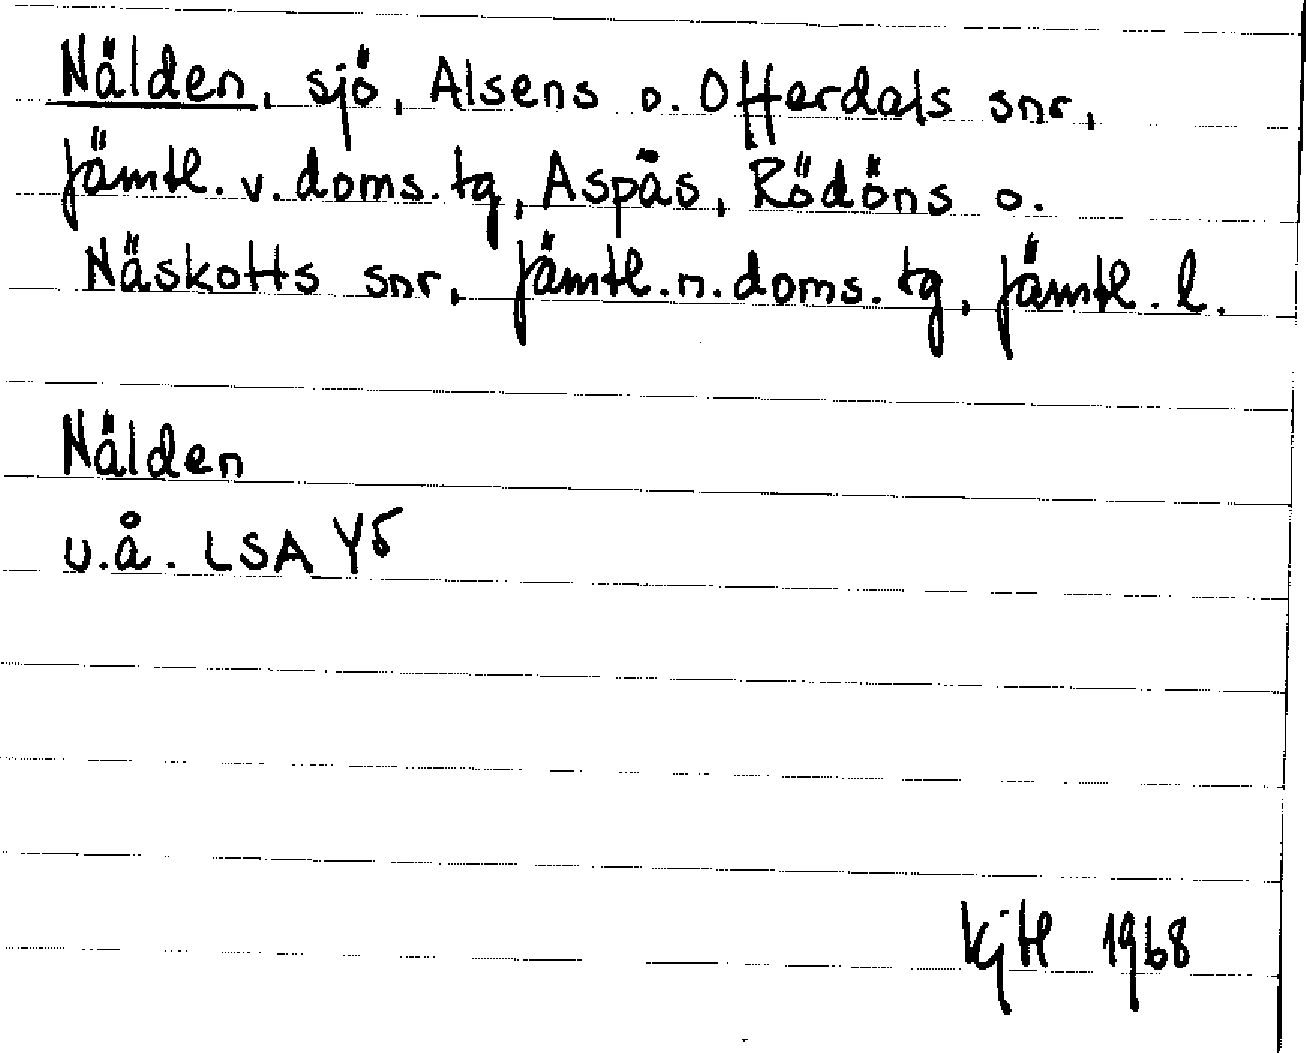 Nälden, sjö, Alsens o. Offerdals snr,
Jämtl. v. doms. tg, Aspås, Rödöns o.
Näskotts snr, Jämtl. n. doms. tg, Jämtl. l.
Nälden
u.å. LSA Y5
1968